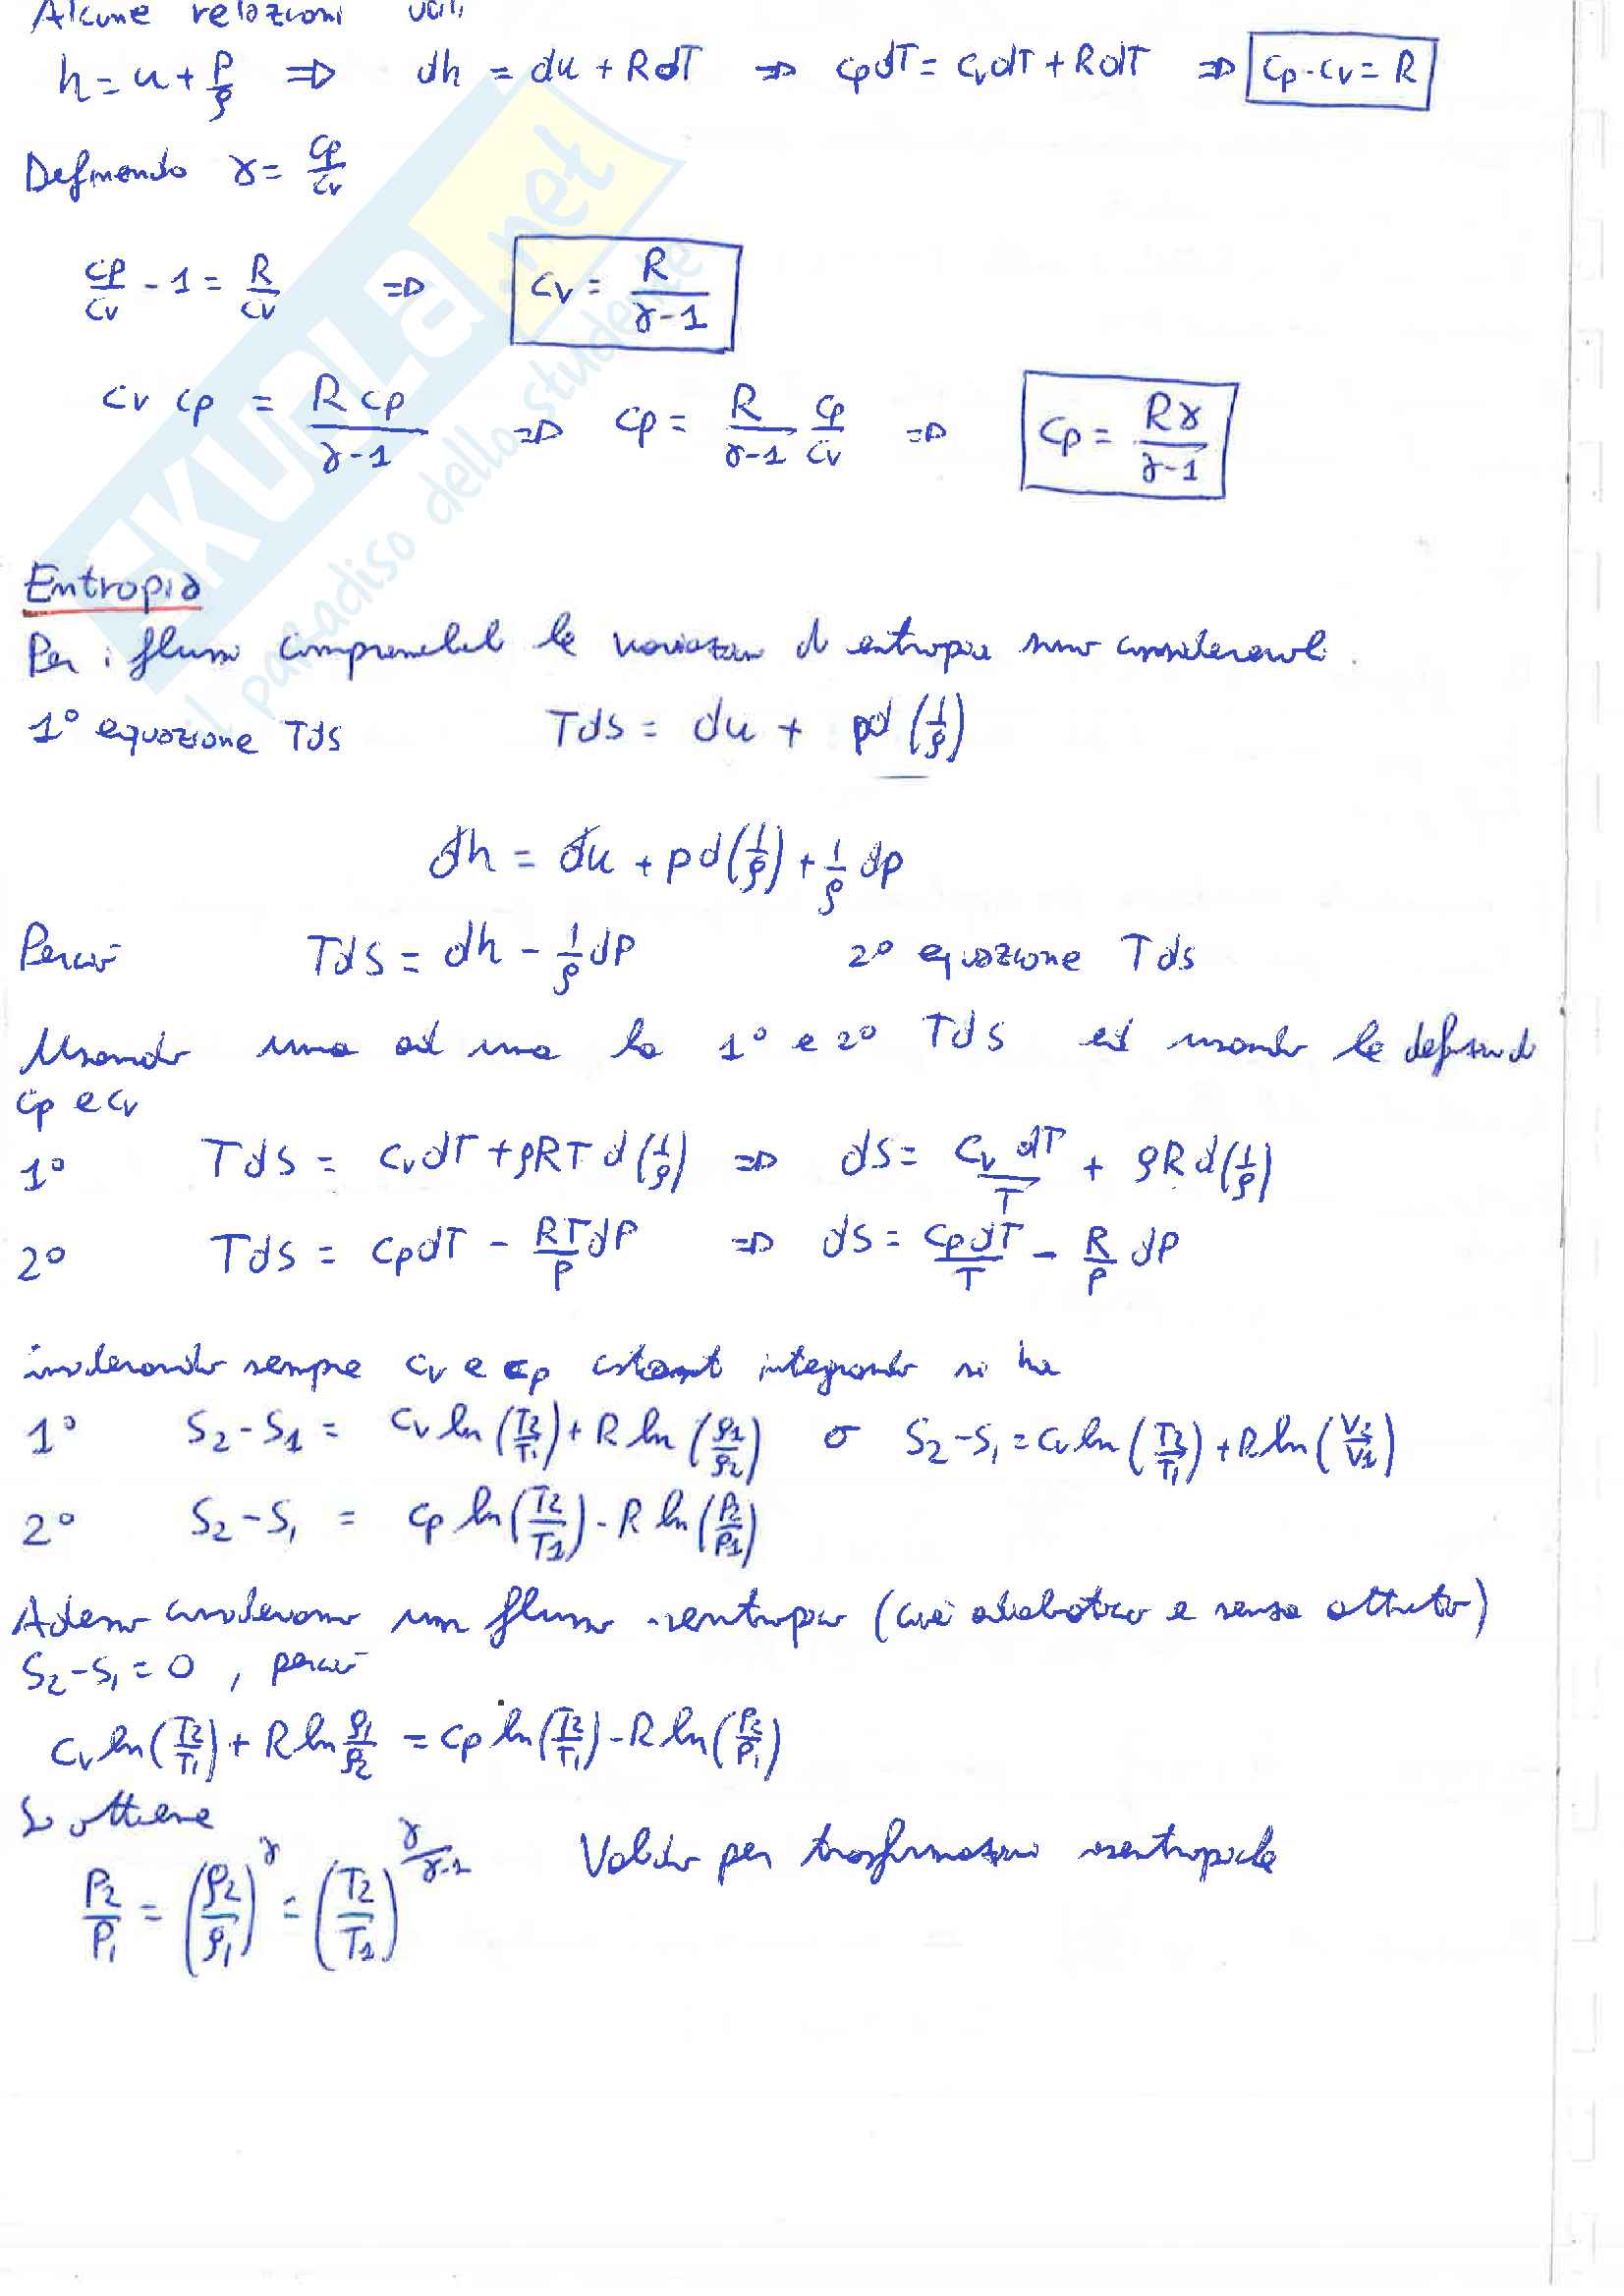 Alcune relazioni utili
h = u + p/ρ ⇒ dh = du + RdT ⇒ cpdT = cvdT + RdT ⇒ cp - cv = R
Definendo γ = cp/cv
cp/cv - 1 = R/cv ⇒ cv = R/(γ-1)
cv cp = R cp/(γ-1) ⇒ cp = R/(γ-1) cp/cv ⇒ cp = Rγ/(γ-1)
Entropia
Per i flussi comprimibili le variazioni di entropia sono considerevoli.
1° equazione Tds Tds = du + pd(1/ρ)
dh = du + pd(1/ρ) + 1/ρ dp
Perciò Tds = dh - 1/ρ dP 2° equazione Tds
Usando una ad una la 1° e 2° Tds ed usando le definizioni di
cp e cv
1° Tds = cvdT + ρRT d(1/ρ) ⇒ ds = cv dT/T + ρR d(1/ρ)
2° Tds = cpdT - RT/P dP ⇒ ds = cp dT/T - R/P dP
sempre cv e cp costanti integrando si ha
1° S2-S1 = cv ln(T2/T1) + R ln(ρ1/ρ2) o S2-S1 = cv ln(T2/T1) + R ln(V2/V1)
2° S2-S1 = cp ln(T2/T1) - R ln(P2/P1)
Adesso consideriamo un flusso isentropico (cioè adiabatico e senza attrito)
S2-S1 = 0, perciò
cv ln(T2/T1) + R ln ρ1/ρ2 = cp ln(T2/T1) - R ln(P2/P1)
Si ottiene
P2/P1 = (ρ2/ρ1)^γ = (T2/T1)^(γ/(γ-1)) Valido per trasformazioni isentropiche
SKUOLA.net
il paradiso dello studente